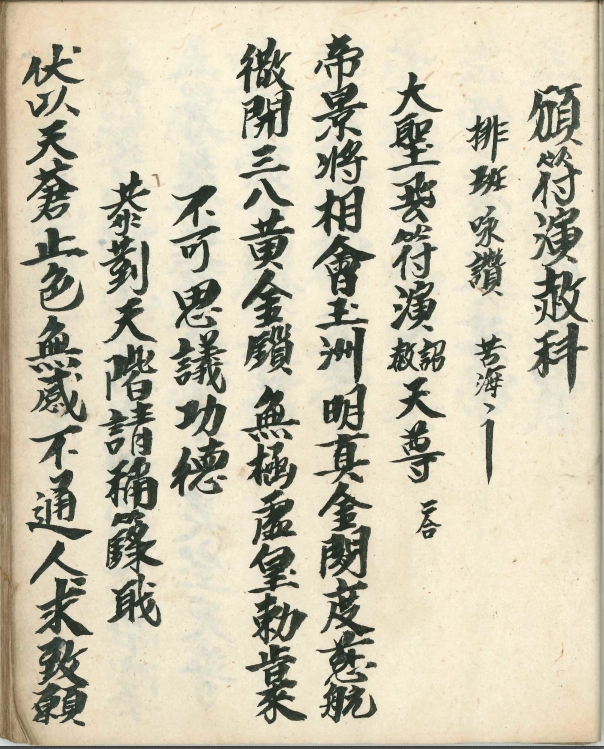 頒符演赦科
排班 咏讚 苦海〻
大聖符演詔赦天尊
帝景將相會玉洲明真金闕度慈航
微開三八黃金鎖無極虛皇勅肯來
不可思議功德
恭對天階請稱籙職
伏以天蒼止色無感不通人求致願